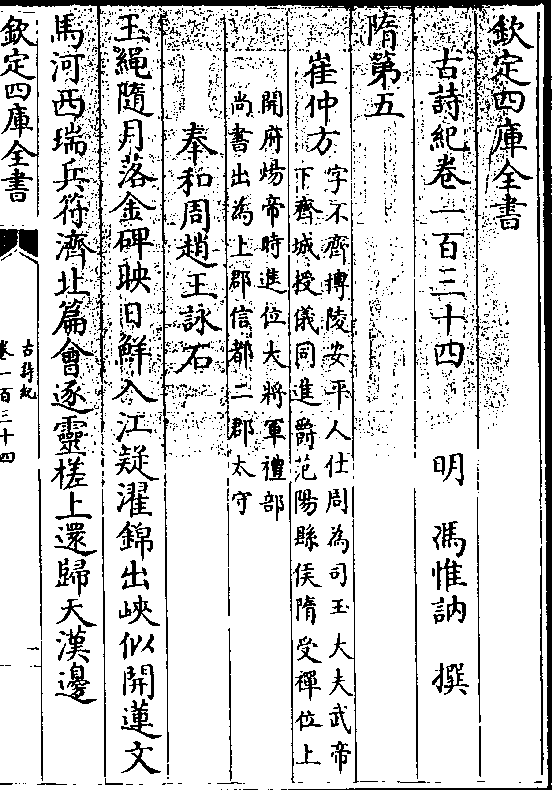 欽定四庫全書
古詩紀卷一百三十四 明 馮惟訥 撰
隋第五
崔仲方
字不齊摶陵安平人仕周為司玉大夫武帝
下齊城授儀同進爵范陽縣侯隋受禪位上
開府煬帝時進位大將軍禮部
尚書出為上郡信都二郡太守
奉和周趙王詠石
玉繩隨月落金碑映日鮮入江疑濯錦出峽似開蓮文
馬河西瑞兵符濟北篇會逐靈槎上還歸天漢邊
欽定四庫全書
古詩紀
卷一百三十四